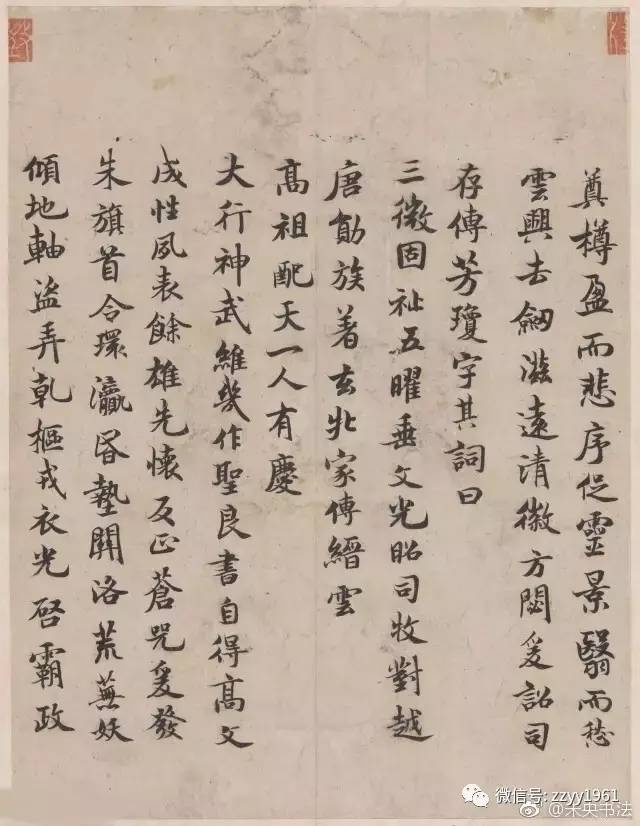 奠樽盈而悲序促靈景翳而愁
雲興去劒滋遠清徽方閟爰詔司
存傳芳瓊字其詞曰
三微固祉五曜垂文光昭司牧對越
唐勛族著玄牝家傳縉雲
高祖配天一人有慶
大行神武維幾作聖良書自得高文
成性夙表餘雄先懷反正蒼兕爰發
朱旗首令環瀛昏墊關洛荒蕪妖
傾地軸盜弄乹樞戎衣光啓霸政
微信号: zzyy1961
@未央书法